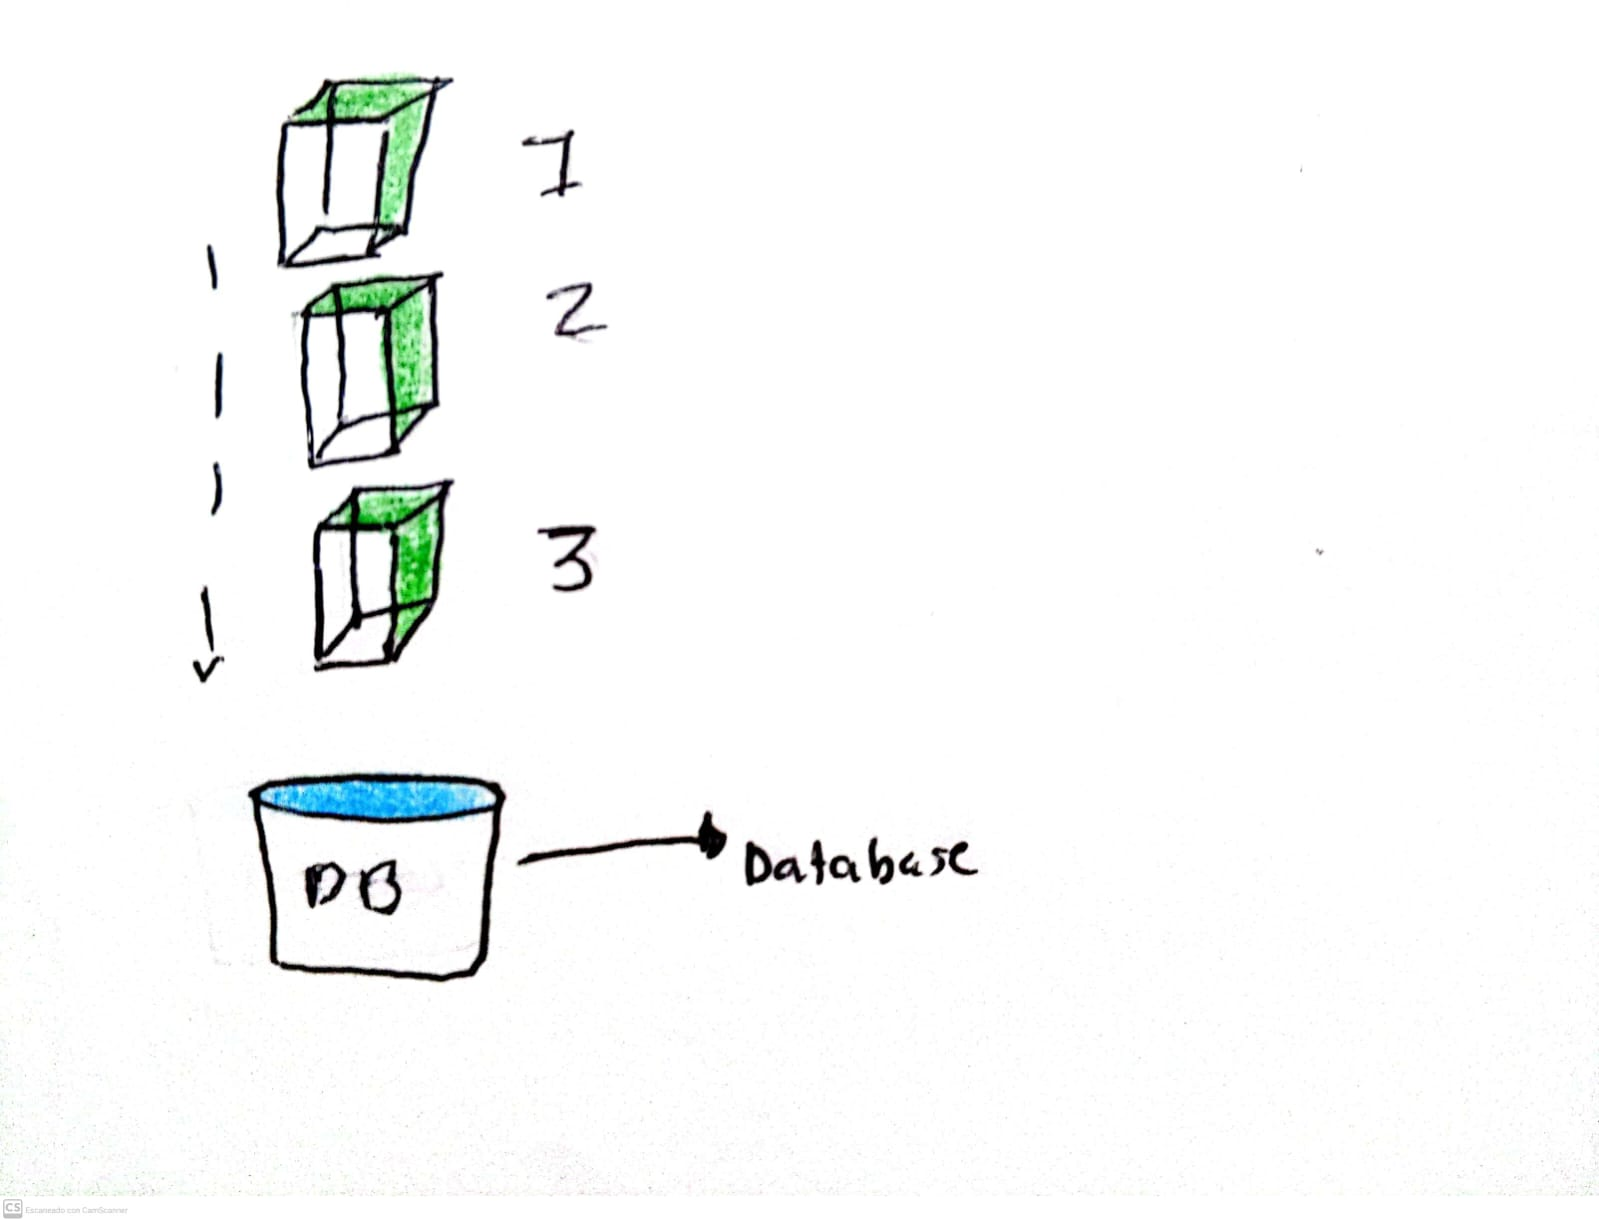 1
2
3
DB
Database
CS Escaneado con CamScanner